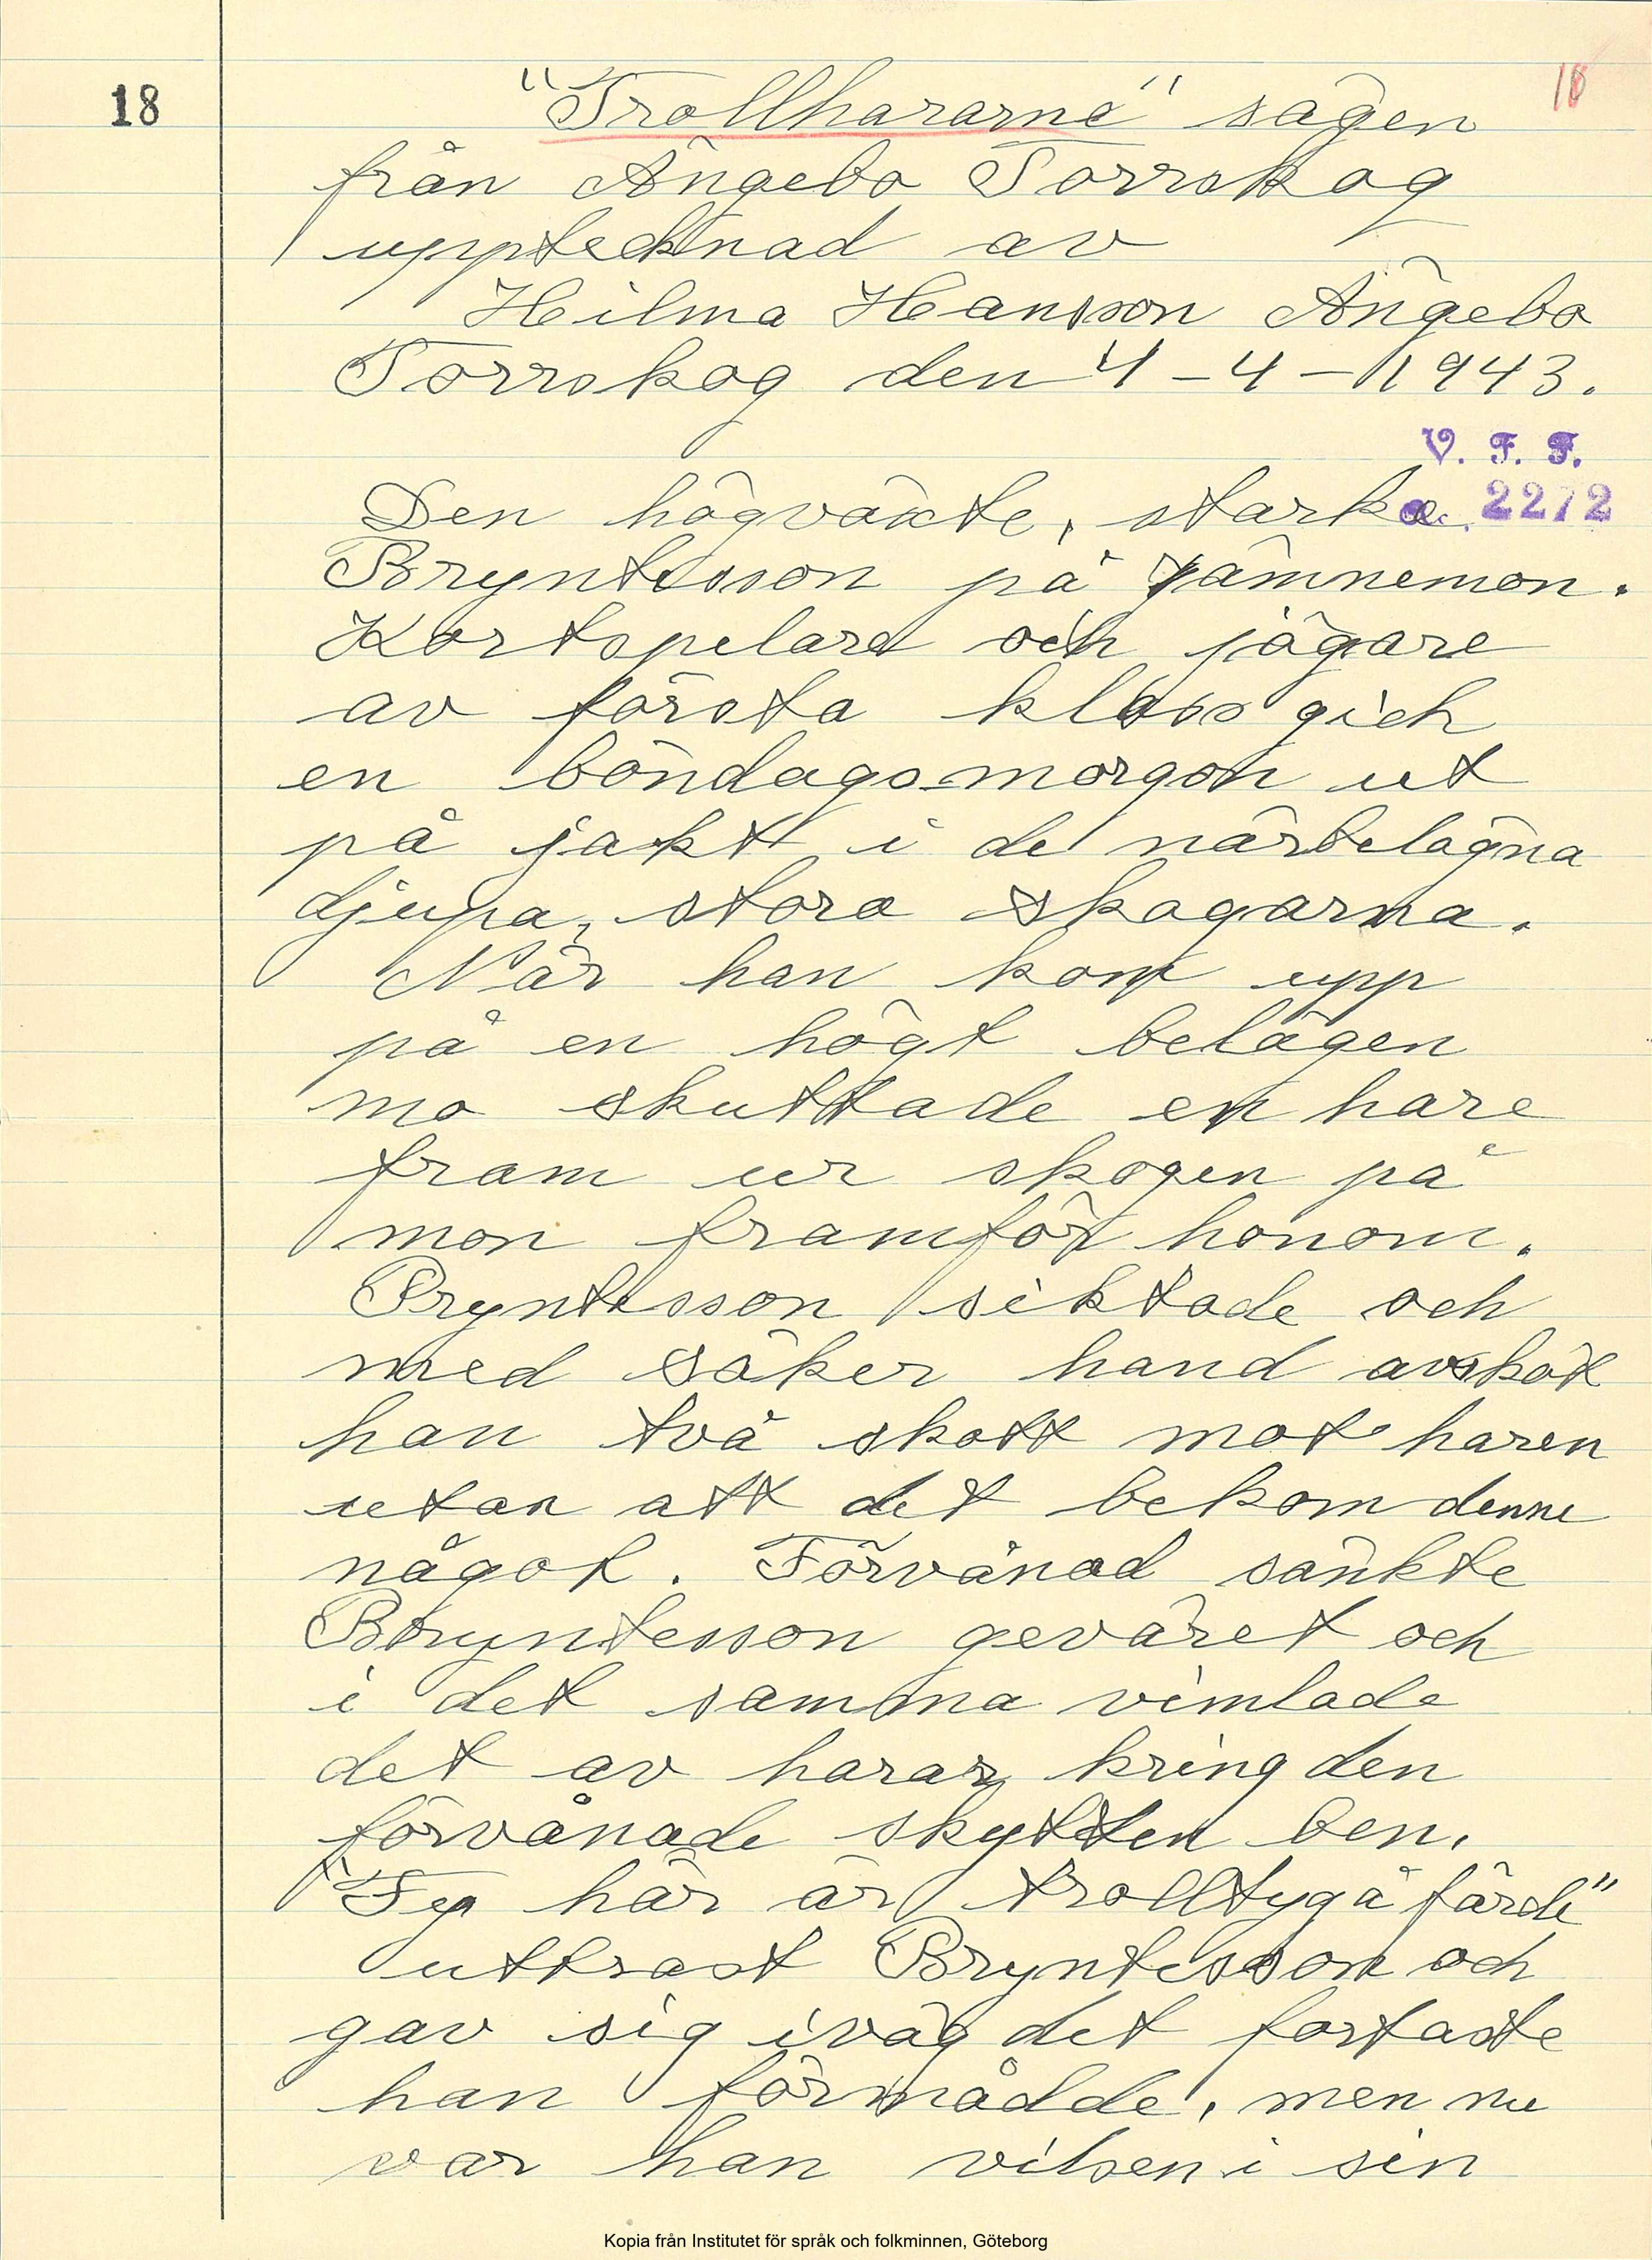 18
18
"Trollhararne" sägen
från Ängebo Torrskog
upptecknad av
Hilma Hansson Ängebo
Torrskog den 4-4-1943.
V. F. F.
2272
Den högväxte, starke
Bryntesson på Tämnemon.
Kortspelare och jägare
av första klass gick
en böndagsmorgon ut
på jakt i de närbelägna
djupa, stora skogarna.
När han kom upp
på en högt belägen
mo skuttade en hare
fram ur skogen på
mon framför honom.
Bryntesson siktade och
med säker hand avsköt
han två skott mot haren
utan att det bekom denne
något. Förvånad sänkte
Bryntesson geväret och
i det samma vimlade
det av harar kring den
förvånade skytten ben.
"Ty här är trolltyg å färde"
utbrast Bryntesson och
gav sig iväg det fortaste
han förmådde, men nu
var han vilsen i sin
Kopia från Institutet för språk och folkminnen, Göteborg